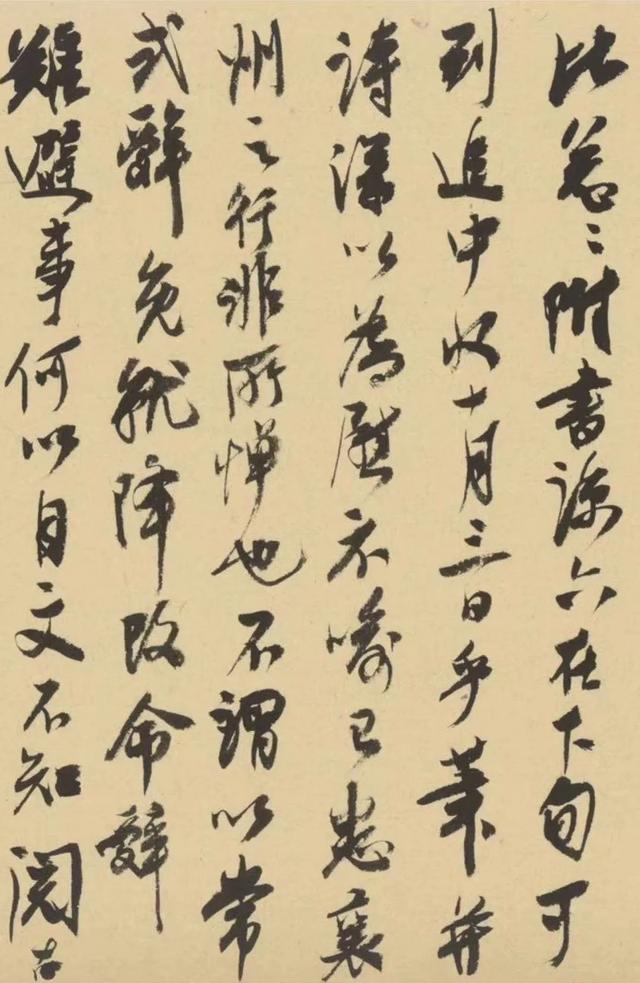 比怱〻附書諒亦在下旬可
到遞中收十月三日手筆并
詩深以為慰示喻已悉襄
州之行非所惮也不謂以常
式辭免就降改命辭
難避事何以自文不知閱古